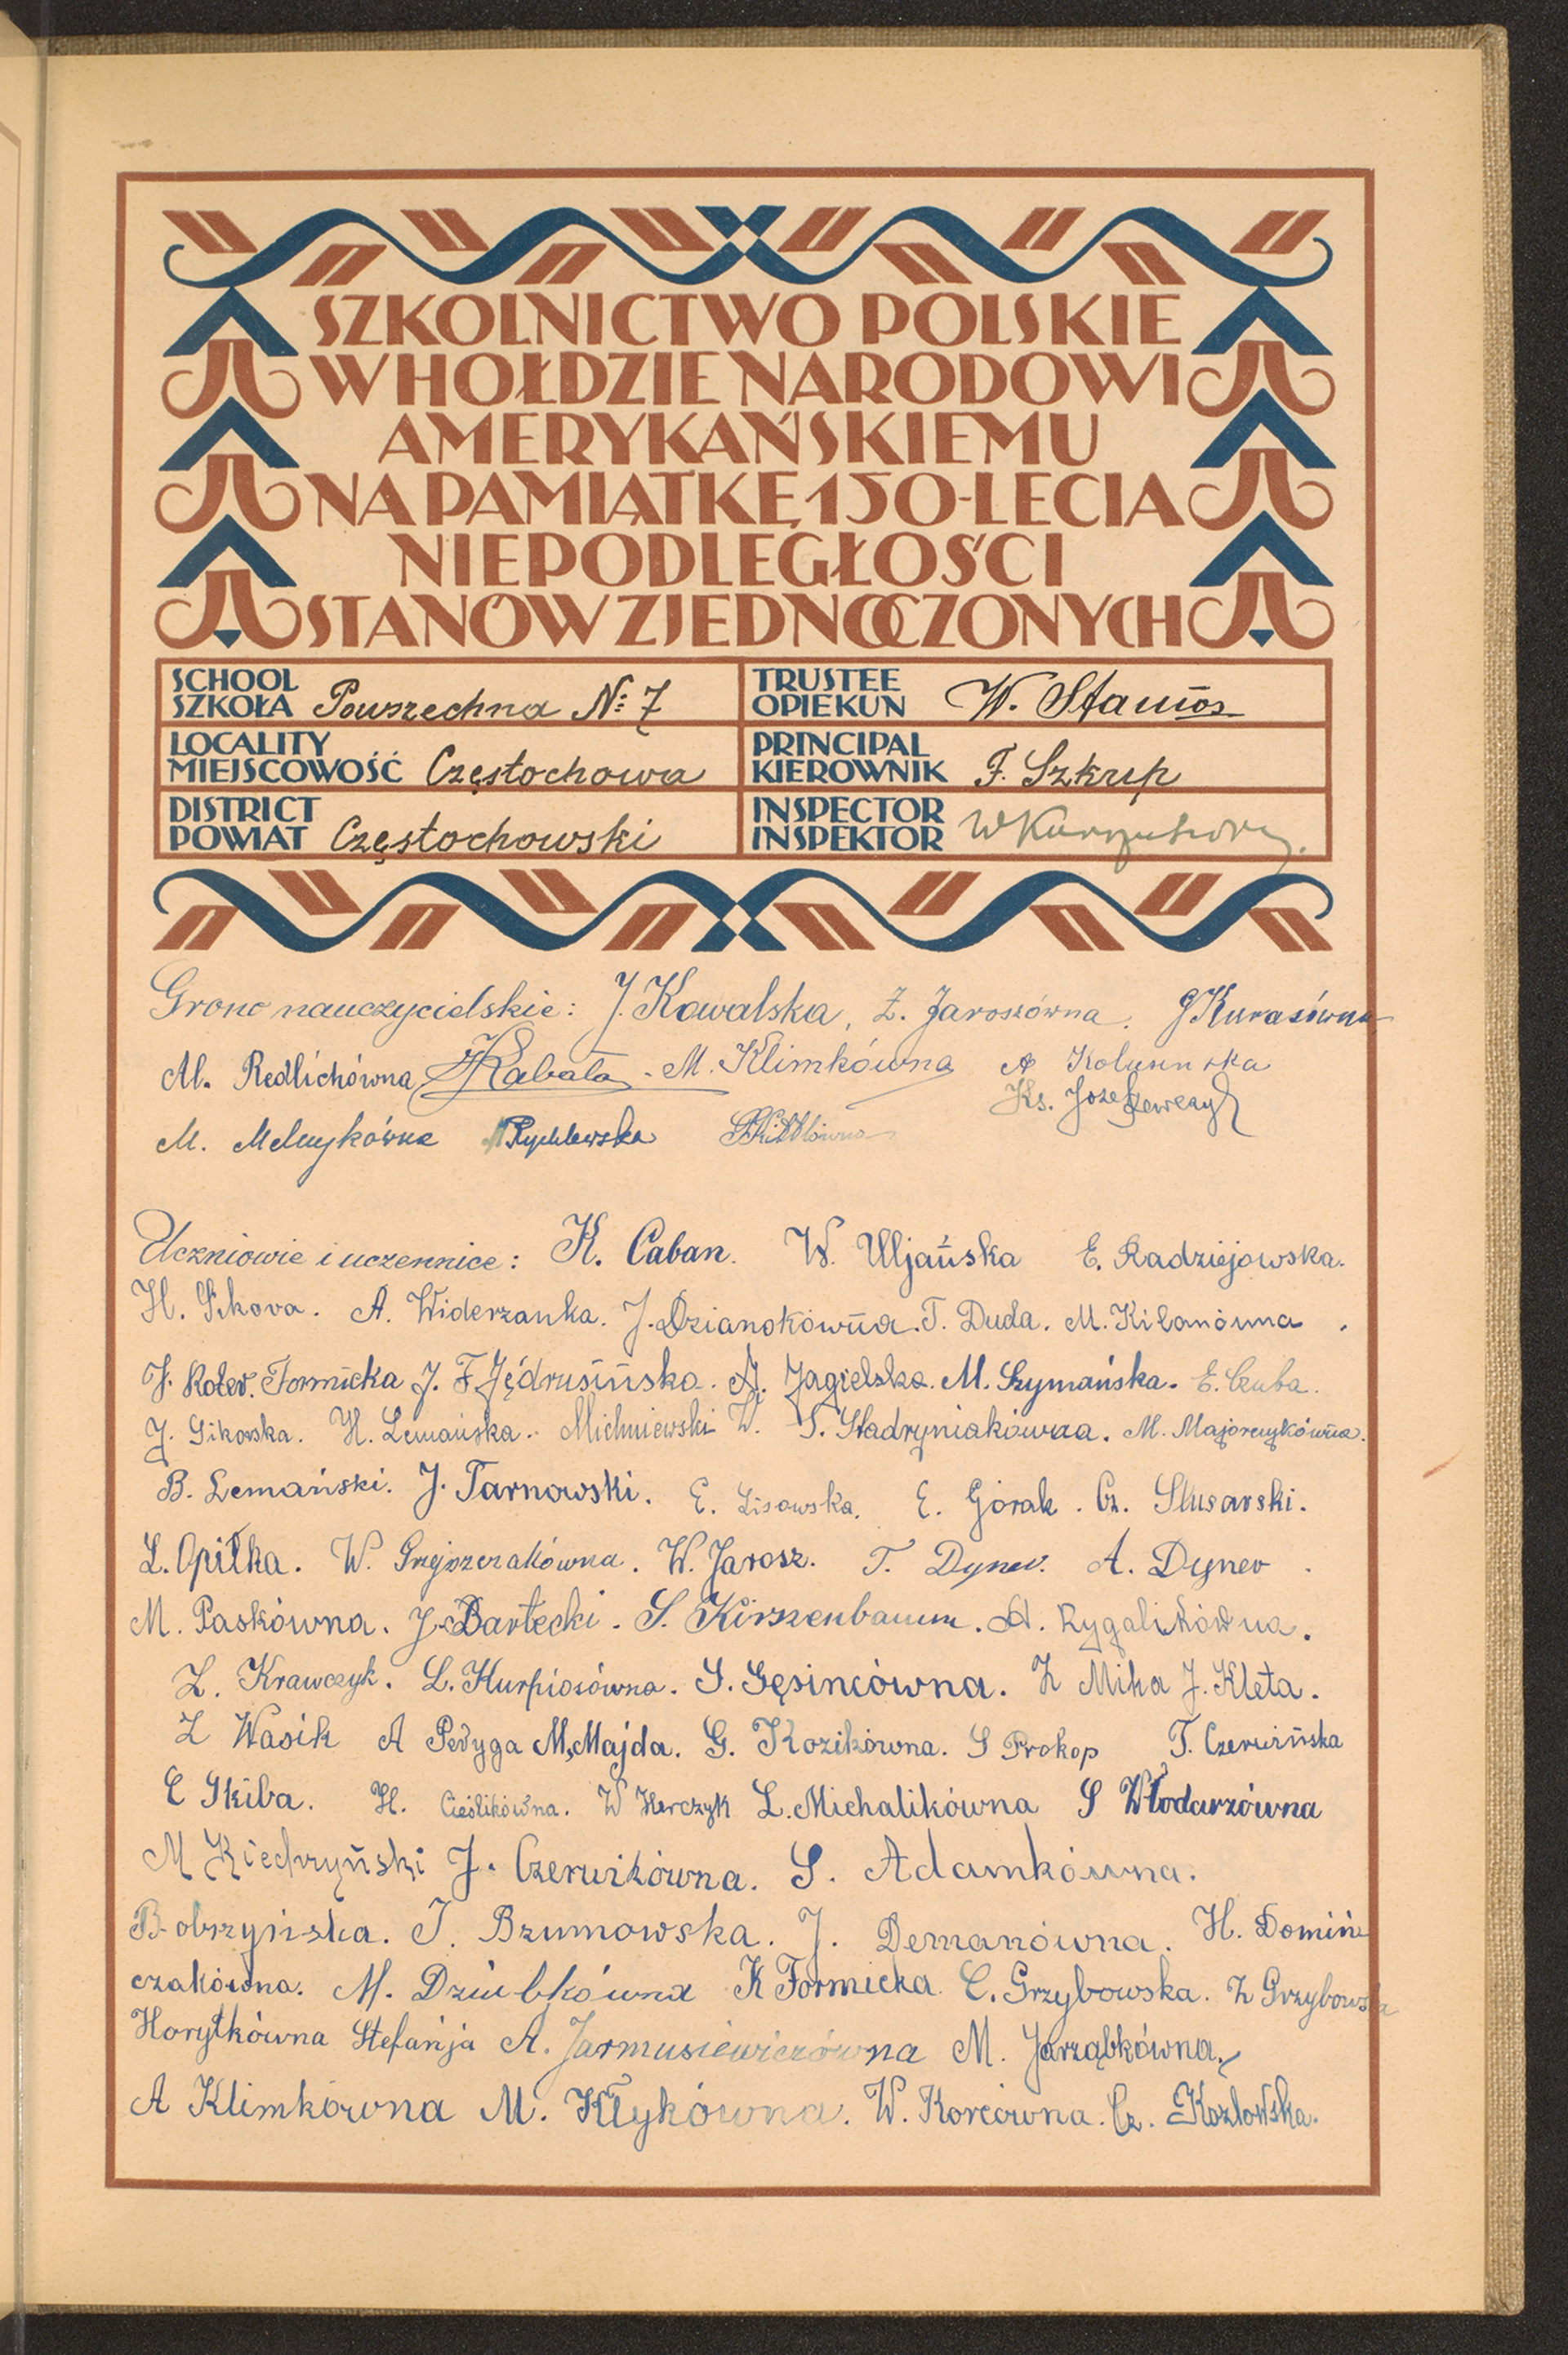 SZKOLNICTWO POLSKIE
W HOŁDZIE NARODOWI
AMERYKAŃSKIEMU
NA PAMIĄTKĘ 150-LECIA
NIEPODLEGŁOŚCI
STANÓW ZJEDNOCZONYCH
SCHOOL
SZKOŁA Powszechna № 7
TRUSTEE
OPIEKUN W. Stanios
LOCALITY
MIEJSCOWOŚĆ Częstochowa
PRINCIPAL
KIEROWNIK F. Szkrup
DISTRICT
POWIAT Częstochowski
INSPECTOR
INSPEKTOR
Grono nauczycielskie: J. Kowalska, Z. Jaroszówna. J Kurasówna
M. Redlichówna Kabata - M. Klimkówna A
Ks. Józef Szewczyk
M. Melnykówna M Rychlewska
Uczniowie i uczennice: K. Caban. W. Uljańska E. Radziejowska.
H. Sikova. A. Widerzanka. J. Dzianokówna. T. Duda. M. Kilanówna .
J. Koter. Formicka J. F. Jędrusińska. A. Jagielska. M. Szymańska. E. Czuba.
J. Sikorska. H. Lemańska. Michniewski W. S. Stadryniakówna. M. Majorczykówna.
B. Lemański. J. Tarnowski. E. Lisowska. E. Górak. Cz. Slusarski.
L. Opiłka. W. Grejszczakówna. W. Jarosz. T. Dyner. A. Dyner .
M. Paskówna. J. Bartecki. S. Kirszenbaum. A. Rygalikówna.
Z. Krawczyk. L. Kurpiosówna. S. Gęsincówna. Z Mika J. Kleta.
Z Wasik A Peryga M. Majda. G. Kozikówna. S Prokop T. Czerwińska
C Skiba. H. Cieślikówna. W Herczyk L. Michalikówna S Włodarzówna
M Kiedrzyński J. Czerwikówna. S. Adamkówna.
Bobrzyńska. J. Brzunowska. J. Demanówna. H. Domin
czakówna. M. Dziubkówna K Formicka. C. Grzybowska. Z Grzybowska
Horytkówna Stefanja A. Jarmusiewiczówna M. Jarząbkówna.
A Klimkówna M. Kłykówna. W. Korcówna. Cz. Kozłowska.